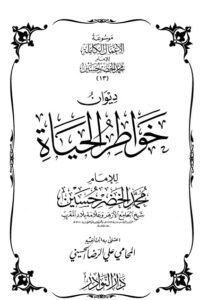 موسوعة
الأعمال الكاملة
للإمام
محمد الخضر حسين
(١٣)
ديوان
خواطر الحياة
للإمام
محمد الخضر حسين
شيخ الجامع الأزهر وعلامة بلاد المغرب
اعتنى به ابن أخيه
المحامي علي الرضا الحسيني
دار النوادر